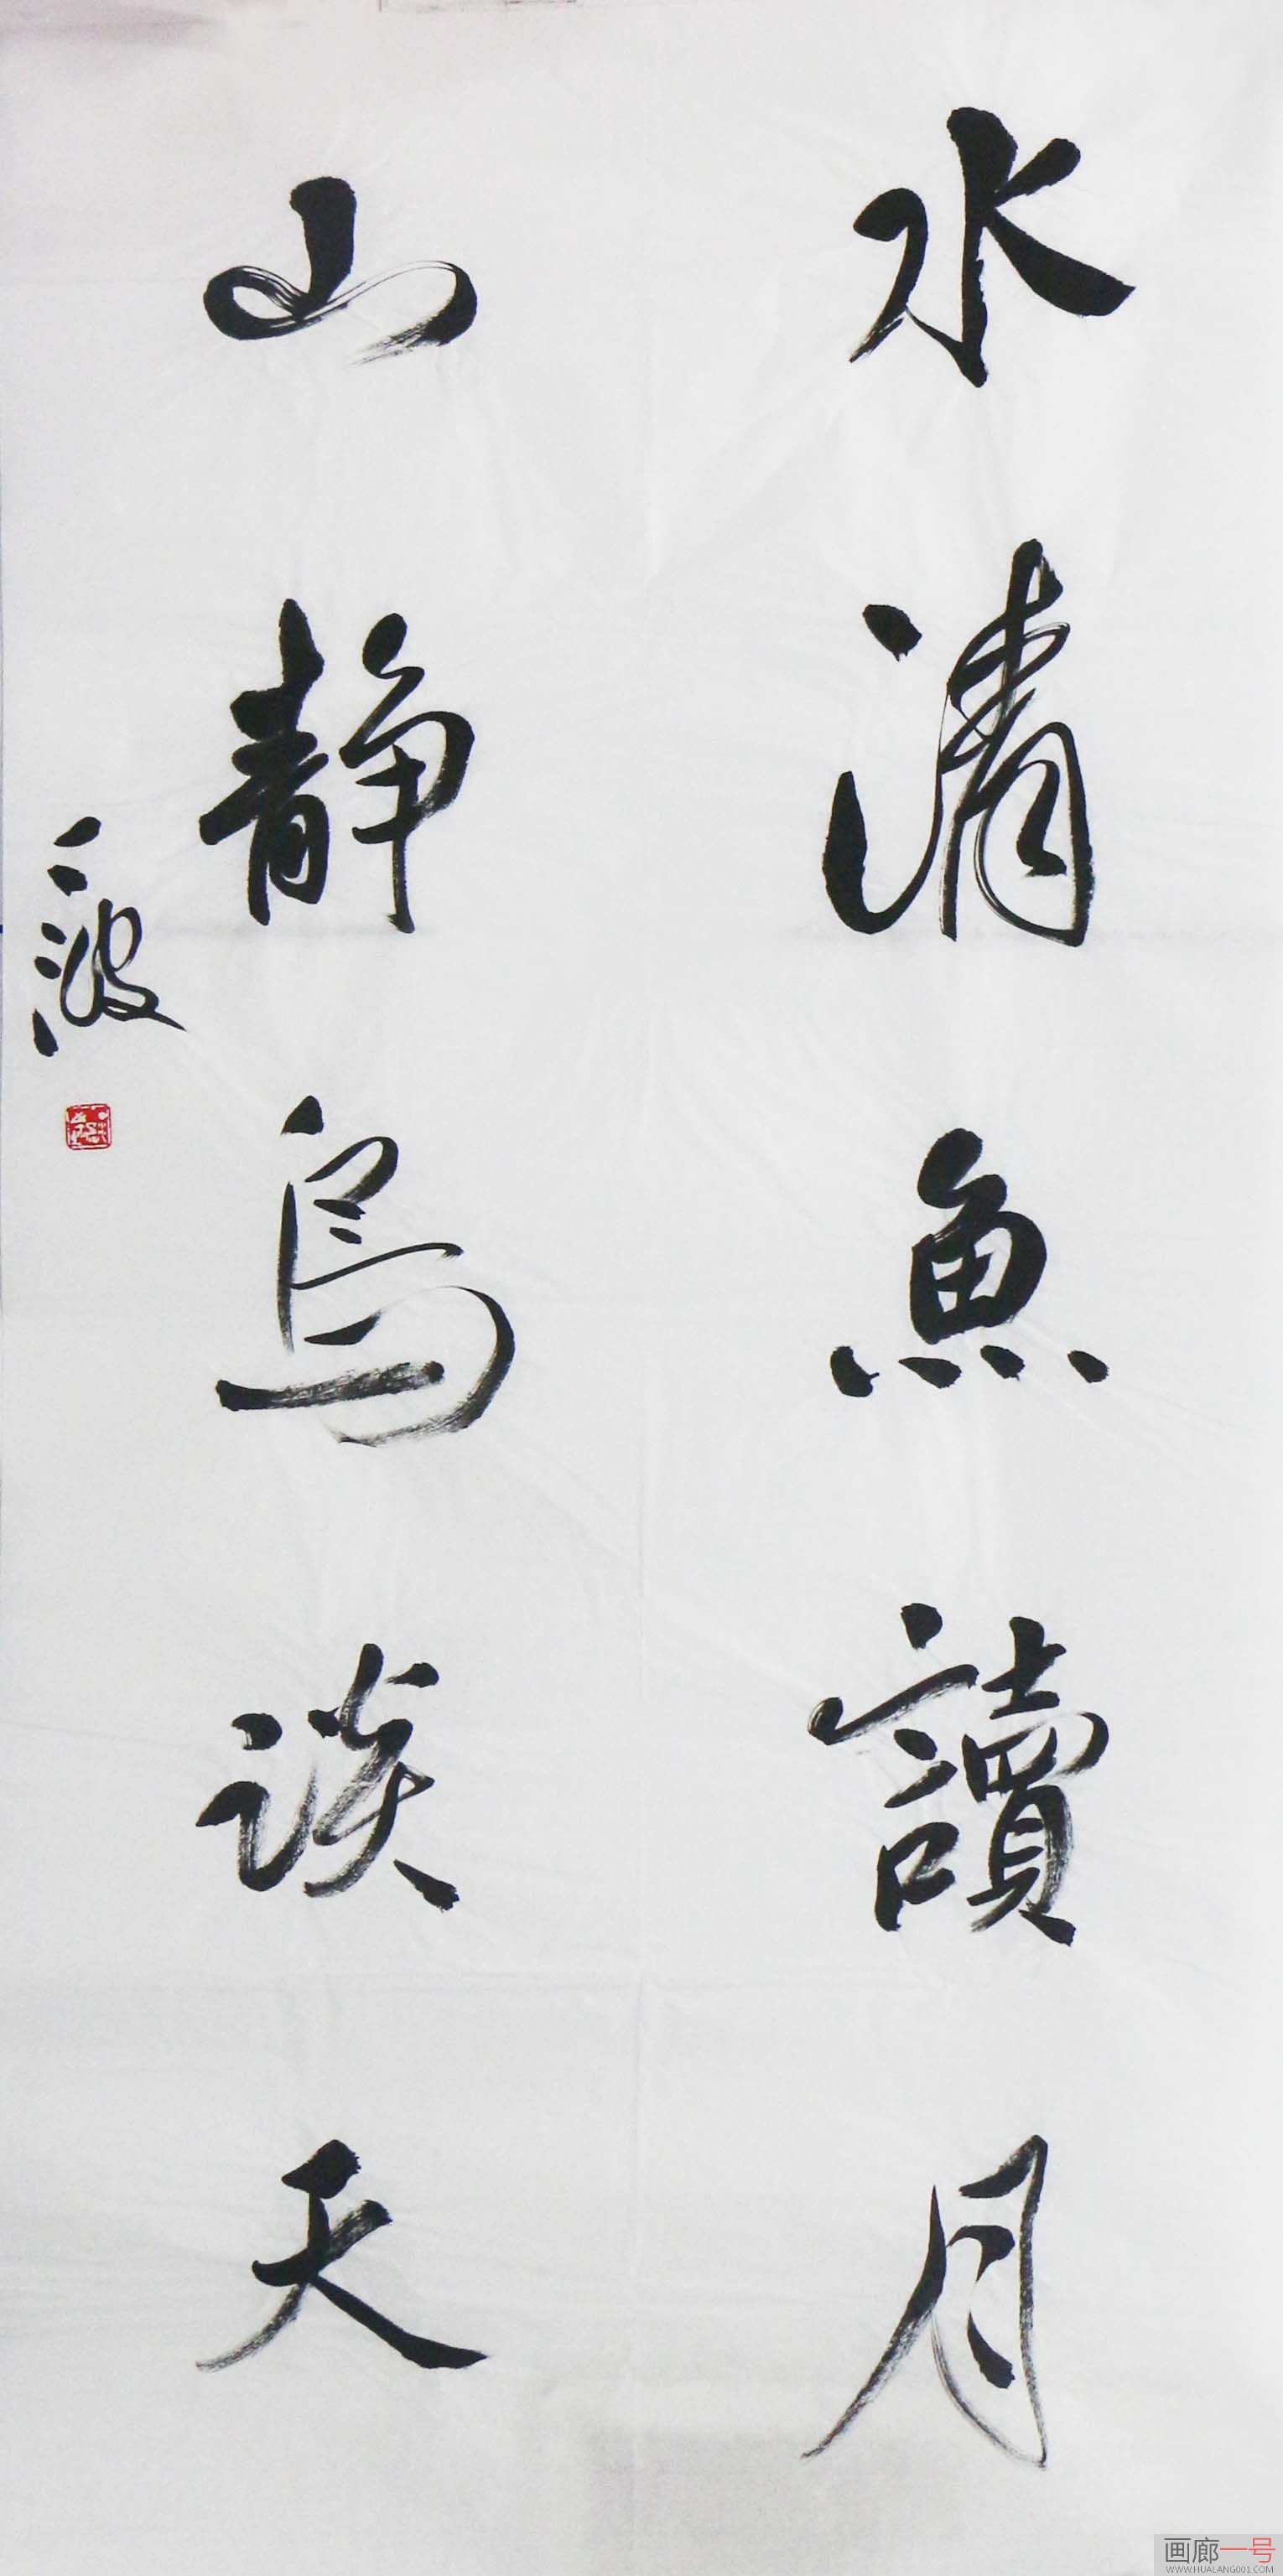 水清魚讀月
山静鸟谈天
一波
画廊一号
WWW.HUALANG001.COM